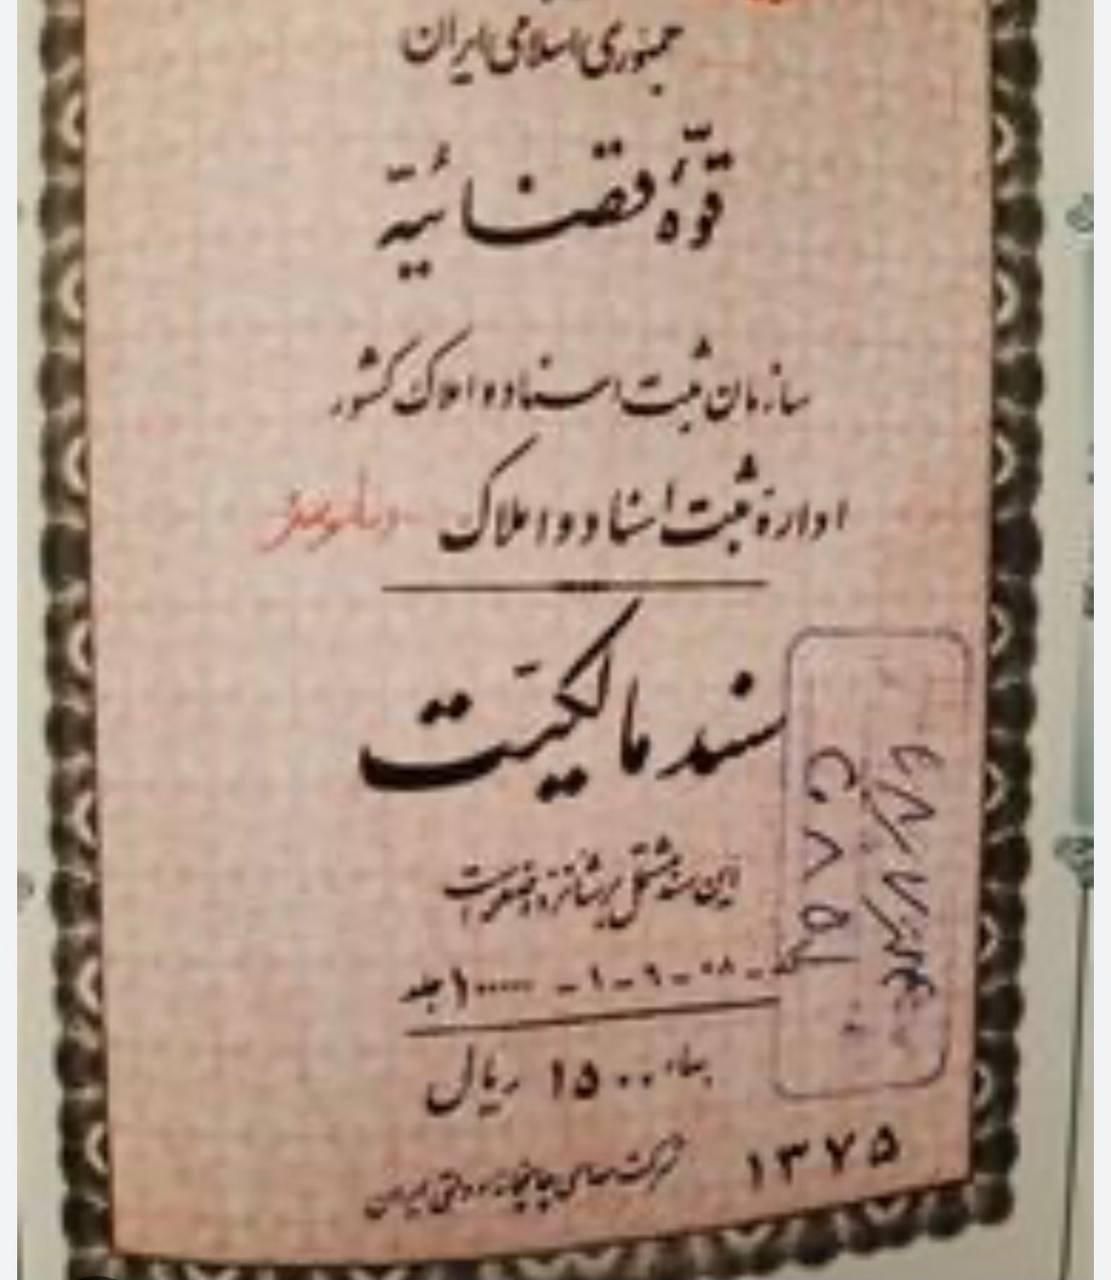 جمهوری اسلامی ایران
قوّهٔ قضائیّه
سازمان ثبت اسناد و املاک کشور
ادارهٔ ثبت اسناد و املاک
سند مالکیّت
این سند مشتمل بر شانزده صفحه است
۰۸ - ۹ - ۱ - ۱۰۰۰۰۰ جلد
بهاء ۱۵۰۰۰ ریال
۱۳۷۵
شرکت سهامی چاپخانه دولتی ایران